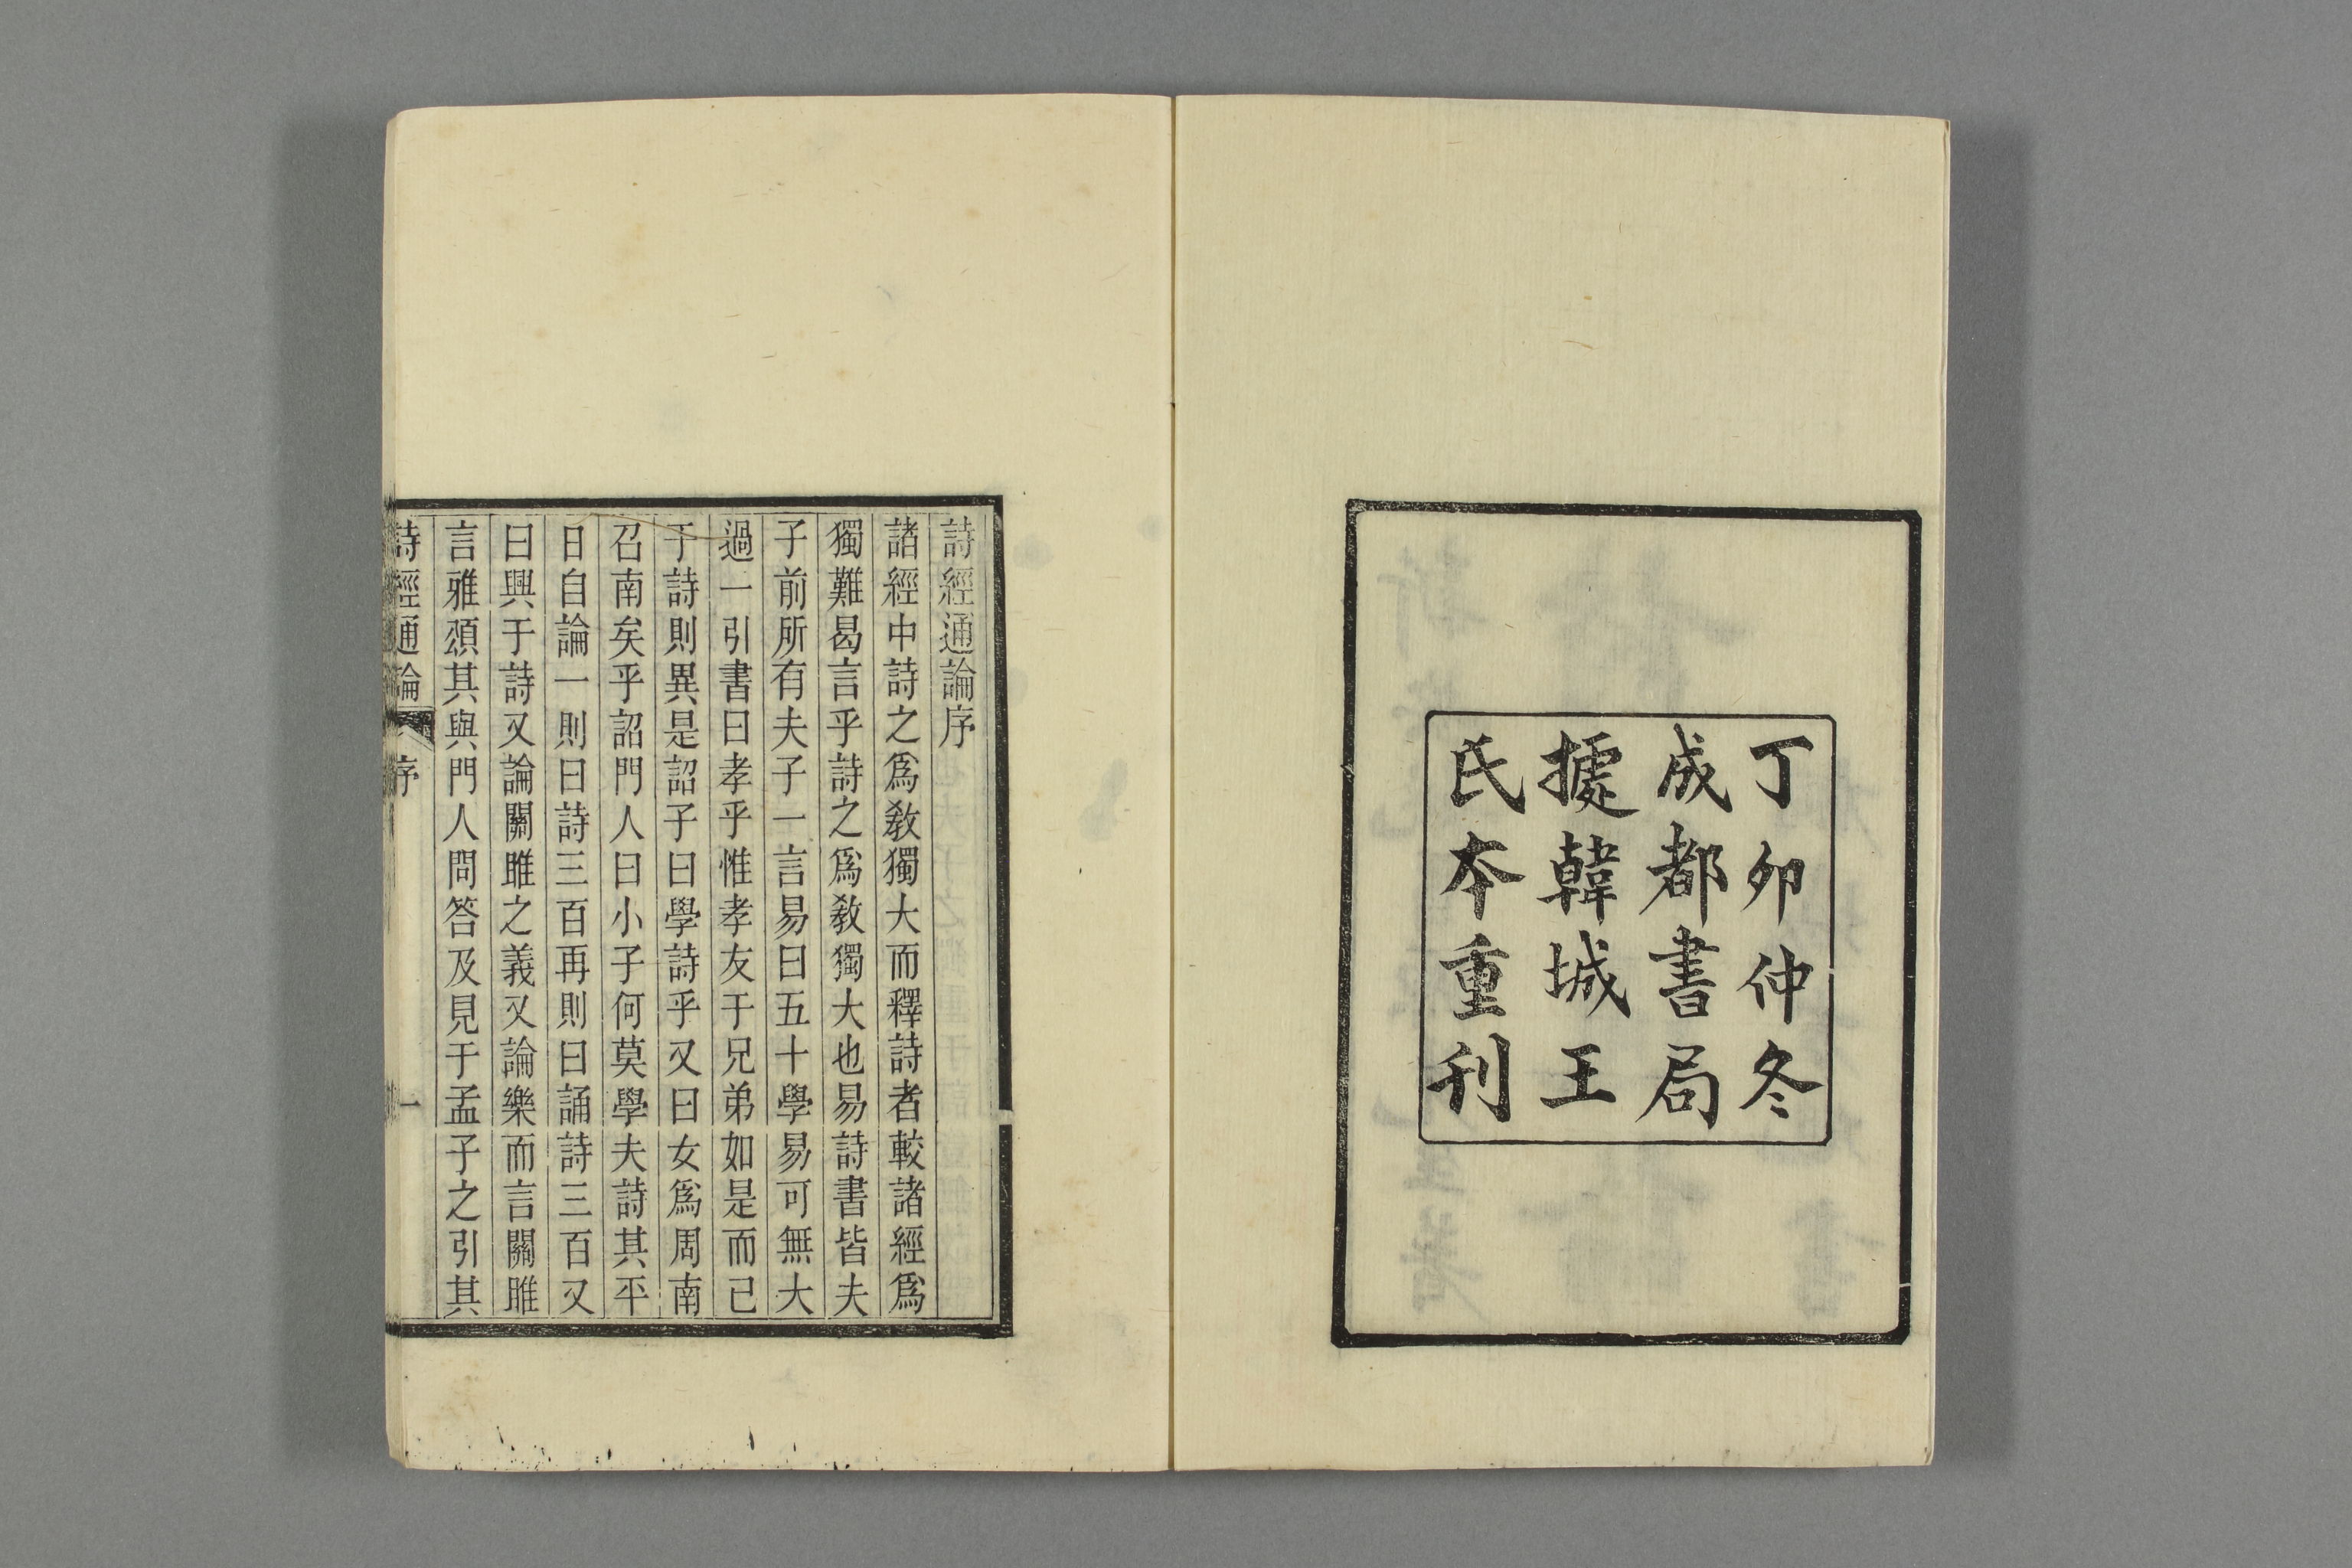 丁卯仲冬
成都書局
㨿韓城王
氏本重刊
詩經通論序
諸經中詩之爲敎獨大而釋詩者較諸經爲
獨難曷言乎詩之爲敎獨大也易詩書皆夫
子前所有夫子一言易曰五十學易可無大
過一引書曰孝乎惟孝友于兄弟如是而已
于詩則異是詔子曰學詩乎又曰女爲周南
召南矣乎詔門人曰小子何莫學夫詩其平
日自論一則曰詩三百再則曰誦詩三百又
曰興于詩又論關雎之義又論樂而言關雎
言雅頌其與門人問答及見于孟子之引其
詩經通論 序 一